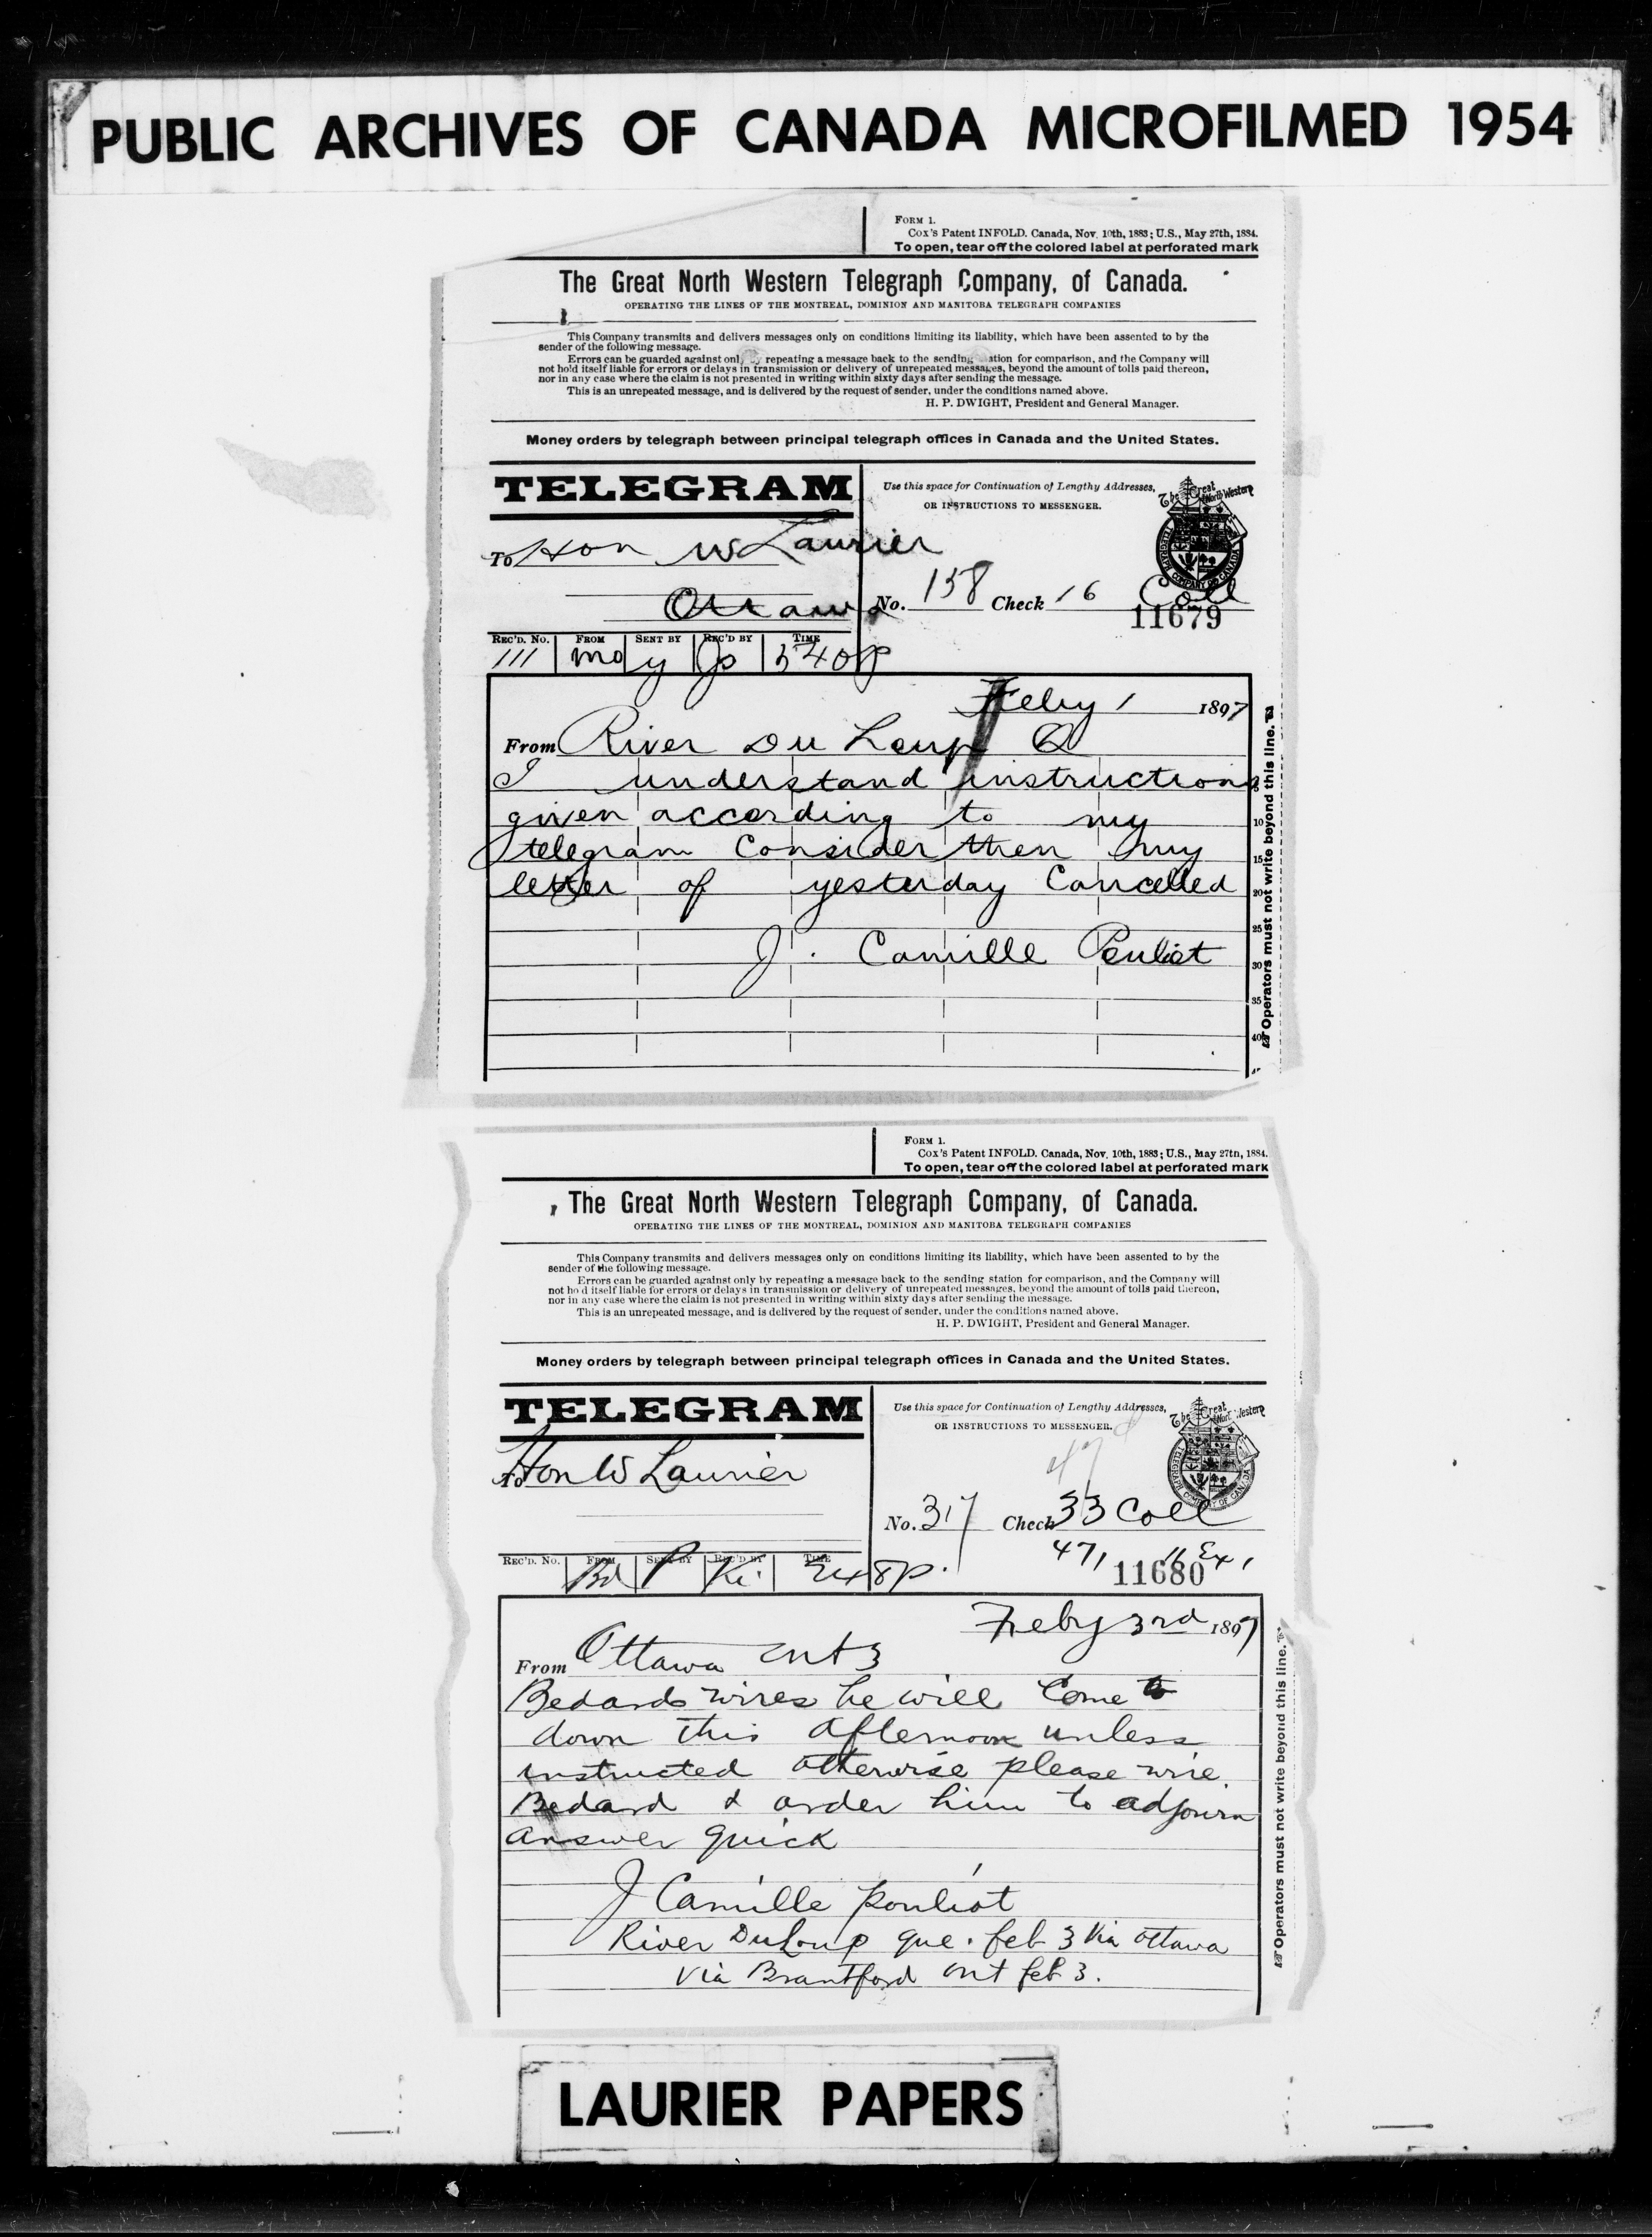 PUBLIC ARCHIVES OF CANADA MICROFILMED 1954
FORM 1.
Cox's Patent INFOLD. Canada, Nov. 10th, 1883; U.S., May 27th, 1884.
To open, tear off the colored label at perforated mark
The Great North Western Telegraph Company, of Canada.
OPERATING THE LINES OF THE MONTREAL, DOMINION AND MANITOBA TELEGRAPH COMPANIES
This Company transmits and delivers messages only on conditions limiting its liability, which have been assented to by the
sender of the following message.
Errors can be guarded against only by repeating a message back to the sending station for comparison, and the Company will
not hold itself liable for errors or delays in transmission or delivery of unrepeated messages, beyond the amount of tolls paid thereon,
nor in any case where the claim is not presented in writing within sixty days after sending the message.
This is an unrepeated message, and is delivered by the request of sender, under the conditions named above.
H. P. DWIGHT, President and General Manager.
Money orders by telegraph between principal telegraph offices in Canada and the United States.
TELEGRAM
Use this space for Continuation of Lengthy Addresses,
OR INSTRUCTIONS TO MESSENGER.
The Great North Western
TELEGRAPH COMPANY OF CANADA
To Hon W Laurier
Ottawa
No. 158 Check 16 Coll
11679
REC'D. No. FROM SENT BY REC'D BY TIME
111 Mo y Jo 540p
Feby 1 1897
From River Du Loup Q
I understand instructions
given according to my
telegram Consider then my
letter of yesterday Cancelled
J. Camille Pouliot
5 10 15 20 25 30 35 40 45
Operators must not write beyond this line.
FORM 1.
Cox's Patent INFOLD. Canada, Nov. 10th, 1883; U.S., May 27th, 1884.
To open, tear off the colored label at perforated mark
The Great North Western Telegraph Company, of Canada.
OPERATING THE LINES OF THE MONTREAL, DOMINION AND MANITOBA TELEGRAPH COMPANIES
This Company transmits and delivers messages only on conditions limiting its liability, which have been assented to by the
sender of the following message.
Errors can be guarded against only by repeating a message back to the sending station for comparison, and the Company will
not hold itself liable for errors or delays in transmission or delivery of unrepeated messages, beyond the amount of tolls paid thereon,
nor in any case where the claim is not presented in writing within sixty days after sending the message.
This is an unrepeated message, and is delivered by the request of sender, under the conditions named above.
H. P. DWIGHT, President and General Manager.
Money orders by telegraph between principal telegraph offices in Canada and the United States.
TELEGRAM
Use this space for Continuation of Lengthy Addresses,
OR INSTRUCTIONS TO MESSENGER.
The Great North Western
TELEGRAPH COMPANY OF CANADA
To Hon W Laurier
No. 317 Check 33 Coll
471 16 Ex 1
11680
REC'D. No. FROM SENT BY REC'D BY TIME
Bd P Ki 248p.
Feby 3rd 1897
From Ottawa Ont 3
Bedards wires he will Come to
down this afternoon unless
instructed otherwise please wire
Bedard & order him to adjourn
answer quick
J Camille Pouliot
River DuLoup que. feb 3 Via Ottawa
Via Brantford Ont feb 3.
Operators must not write beyond this line.
LAURIER PAPERS